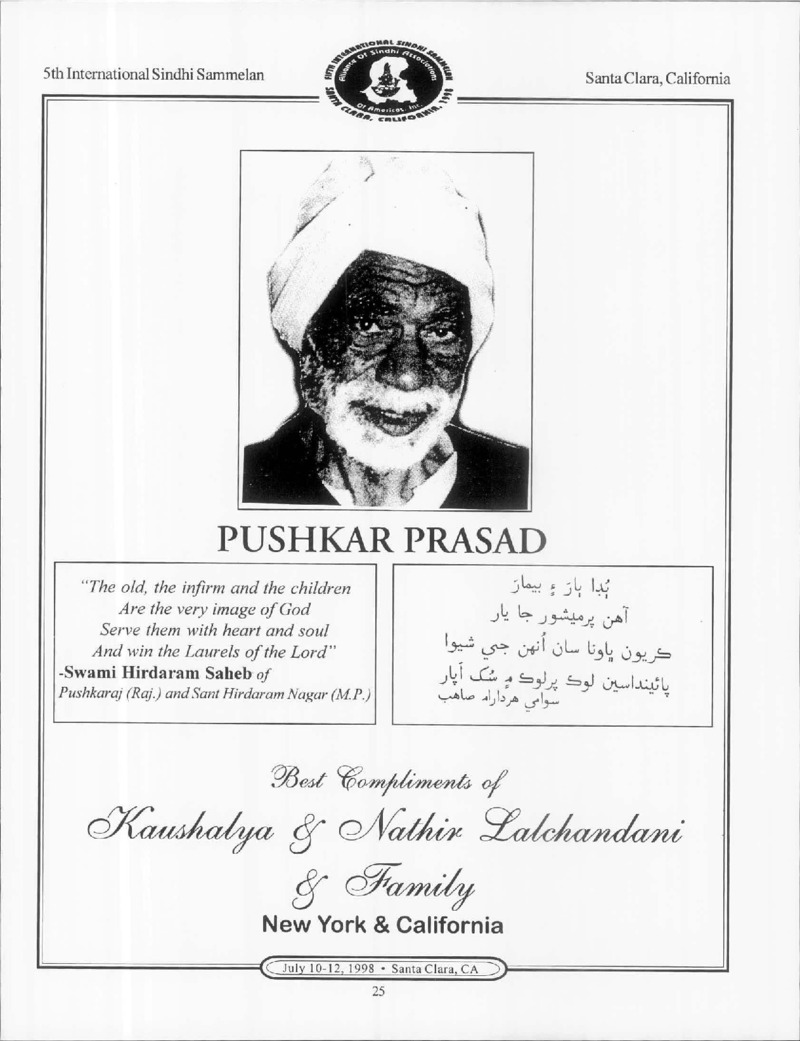 5th International Sindhi Sammelan
FIFTH INTERNATIONAL SINDHI SAMMELAN
Alliance Of Sindhi Associations
Of Americas, Inc.
SANTA CLARA, CALIFORNIA, 1998
Santa Clara, California
PUSHKAR PRASAD
"The old, the infirm and the children
Are the very image of God
Serve them with heart and soul
And win the Laurels of the Lord"
-Swami Hirdaram Saheb of
Pushkaraj (Raj.) and Sant Hirdaram Nagar (M.P.)
ٻُڍا ٻارَ ۽ بيمارَ
آهن پرميشور جا يار
ڪريون ڀاونا سان اُنهن جي شيوا
پائينداسين لوڪ پرلوڪ ۾ سُک اَپار
سوامي هردارام صاحب
Best Compliments of
Kaushalya & Nathir Lalchandani
& Family
New York & California
July 10-12, 1998 • Santa Clara, CA
25